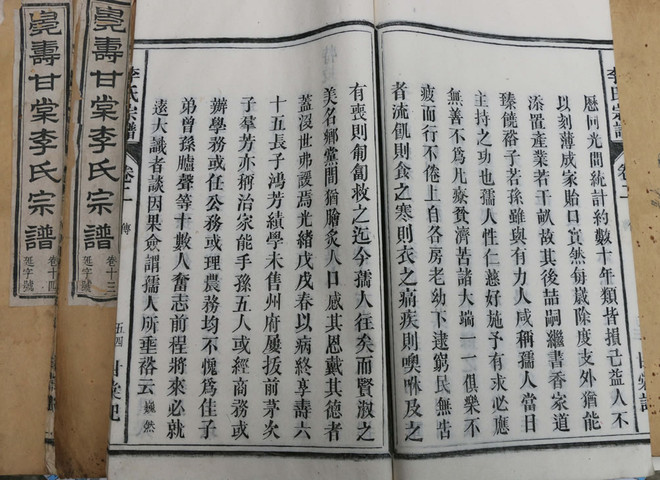 李氏宗譜 卷二
厯同光間統計約數十年類皆損己益人不
以刻薄成家貽口實然每嵗除度支外猶能
添置產業若干畝故其後喆嗣繼書香家道
臻饒裕子若孫雖與有力人咸稱孺人當日
主持之功也孺人性仁慈好施予有求必應
無善不爲凡療貧濟苦諸大端一一俱樂不
疲而行不倦上自各房老幼下逮窮民無告
者流飢則食之寒則衣之痛疾則噢咻及之
有喪則匍匐救之迄今孺人往矣而賢淑之
美名鄉黨間猶膾炙人口感其恩戴其德者
蓋沒世弗諼焉光緒戊戌春以病終享壽六
十五長子鴻芳績學未售州府屢拔前茅次
子羣芳亦治家能手孫五人或經商務或
辦學務或任公務或理農務均不愧爲佳子
弟曾孫臚聲等十數人奮志前程將來必就
遠大識者談因果僉謂孺人所垂蔭云 巍然
李氏宗譜 卷二 傳 五四 甘棠記
壽甘棠李氏宗譜 卷十三 字號
壽甘棠李氏宗譜 卷十四 字號